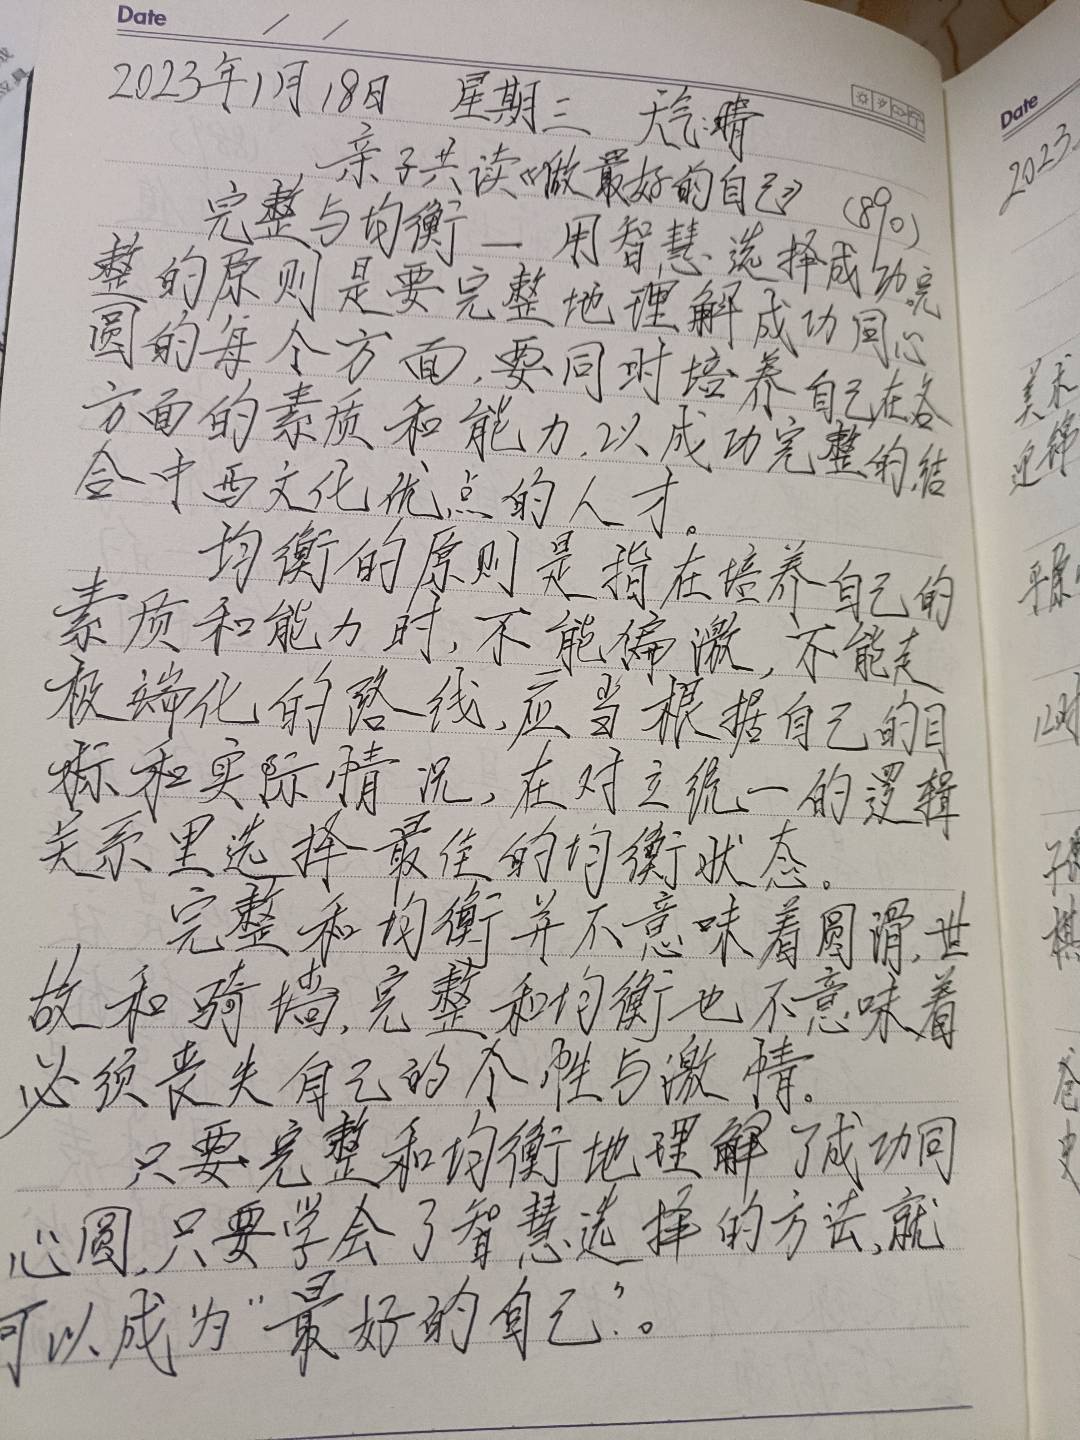 Date / /
2023年1月18日 星期三 天气:晴
亲子共读《做最好的自己》 (890)
完整与均衡—用智慧选择成功。完
整的原则是要完整地理解成功同心
圆的每个方面,要同时培养自己在各
方面的素质和能力,以成功完整的结
合中西文化优点的人才。
均衡的原则是指在培养自己的
素质和能力时,不能偏激,不能走
极端化的路线,应当根据自己的目
标和实际情况,在对立统一的逻辑
关系里选择最佳的均衡状态。
完整和均衡并不意味着圆滑,世
故和骑墙,完整和均衡也不意味着
必须丧失自己的个性与激情。
只要完整和均衡地理解了成功同
心圆,只要学会了智慧选择的方法,就
可以成为"最好的自己"。
Date
2023
美术
平原
子
棋
史